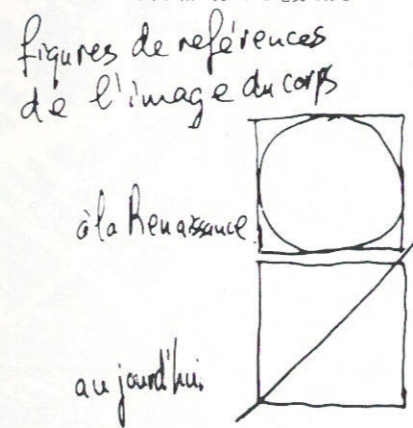 figures de références
de l'image du corps
à la Renaissance
aujourd'hui.